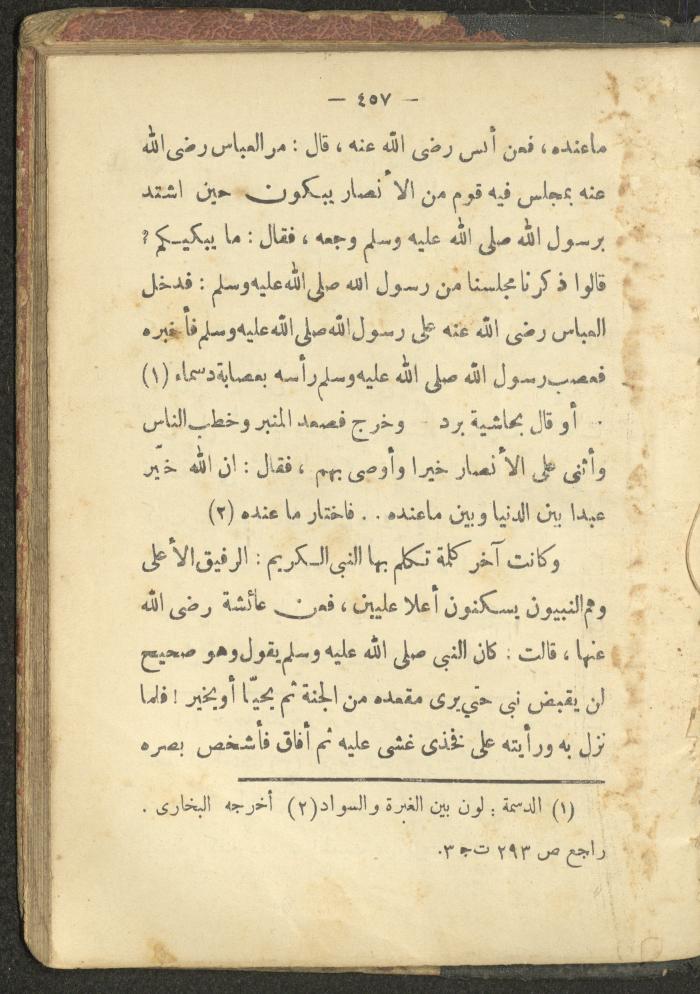 — ٤٥٧ —
ماعنده ، فعن أنس رضى الله عنه ، قال : مر العباس رضى الله
عنه بمجلس فيه قوم من الأنصار يبكون حين اشتد
برسول الله صلى الله عليه وسلم وجعه ، فقال : ما يبكيكم ؟
قالوا ذكرنا مجلسنا من رسول الله صلى الله عليه وسلم : فدخل
العباس رضى الله عنه على رسول الله صلى الله عليه وسلم فأخبره
فعصب رسول الله صلى الله عليه وسلم رأسه بعصابة دسماء (١)
- أو قال بحاشية برد - وخرج فصعد المنبر وخطب الناس
وأثنى على الأنصار خيرا وأوصى بهم ، فقال : ان الله خيّر
عبدا بين الدنيا وبين ماعنده . . فاختار ما عنده (٢)
وكانت آخر كلمة تكلم بها النبى الكريم : الرفيق الأعلى
وهم النبيون يسكنون أعلا عليين ، فعن عائشة رضى الله
عنها ، قالت : كان النبى صلى الله عليه وسلم يقول وهو صحيح
لن يقبض نبى حتي يرى مقعده من الجنة ثم يحيّا أو يخير ! فلما
نزل به ورأيته على نخذى غشى عليه ثم أفاق فأشخص بصره
(١) الدسمة : لون بين الغبرة والسواد (٢) أخرجه البخارى .
راجع ص ٢٩٣ ت ج ٣.